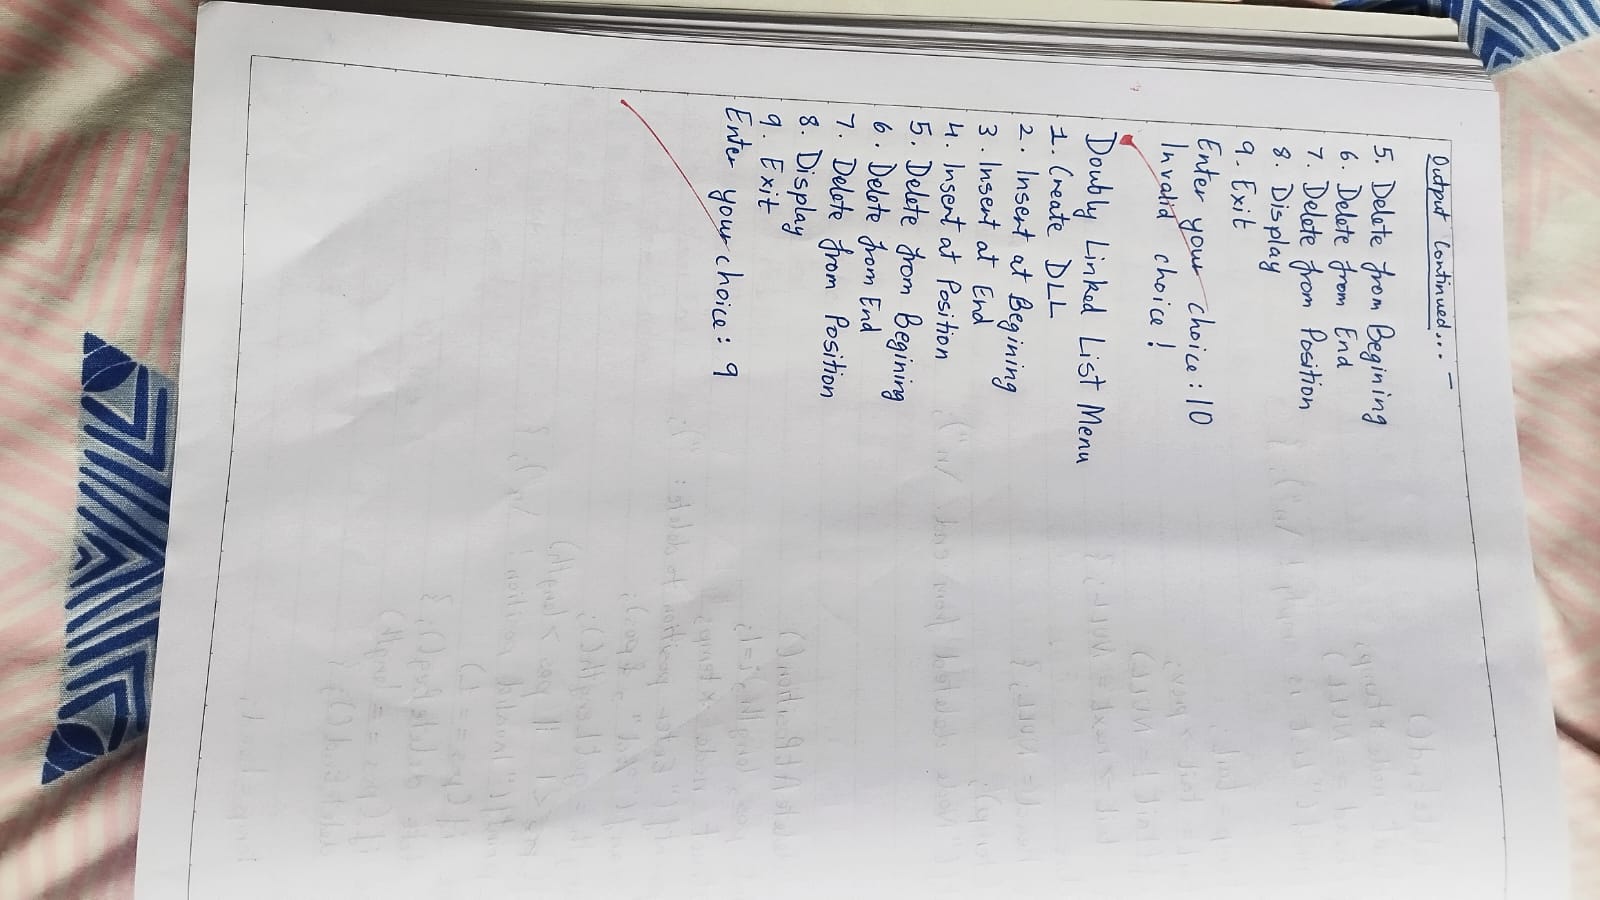 Output Continued... -
5. Delete from Begining
6. Delete from End
7. Delete from Position
8. Display
9. Exit
Enter your choice: 10
Invalid choice!
Doubly Linked List Menu
1. Create DLL
2. Insert at Begining
3. Insert at End
4. Insert at Position
5. Delete from Begining
6. Delete from End
7. Delete from Position
8. Display
9. Exit
Enter your choice: 9